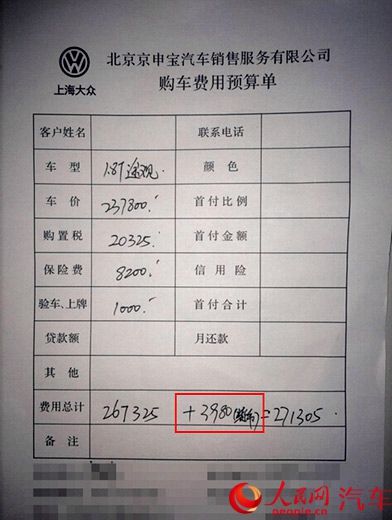 北京京申宝汽车销售服务有限公司
购车费用预算单
上海大众
客户姓名 联系电话
车型 1.8T途观 颜色
车价 237800. 首付比例
购置税 20325. 首付金额
保险费 8200. 信用险
验车、上牌 1000. 首付合计
贷款额 月还款
其他
费用总计 267325 +3980 =271305.
备注
人民网 汽车
people.com.cn